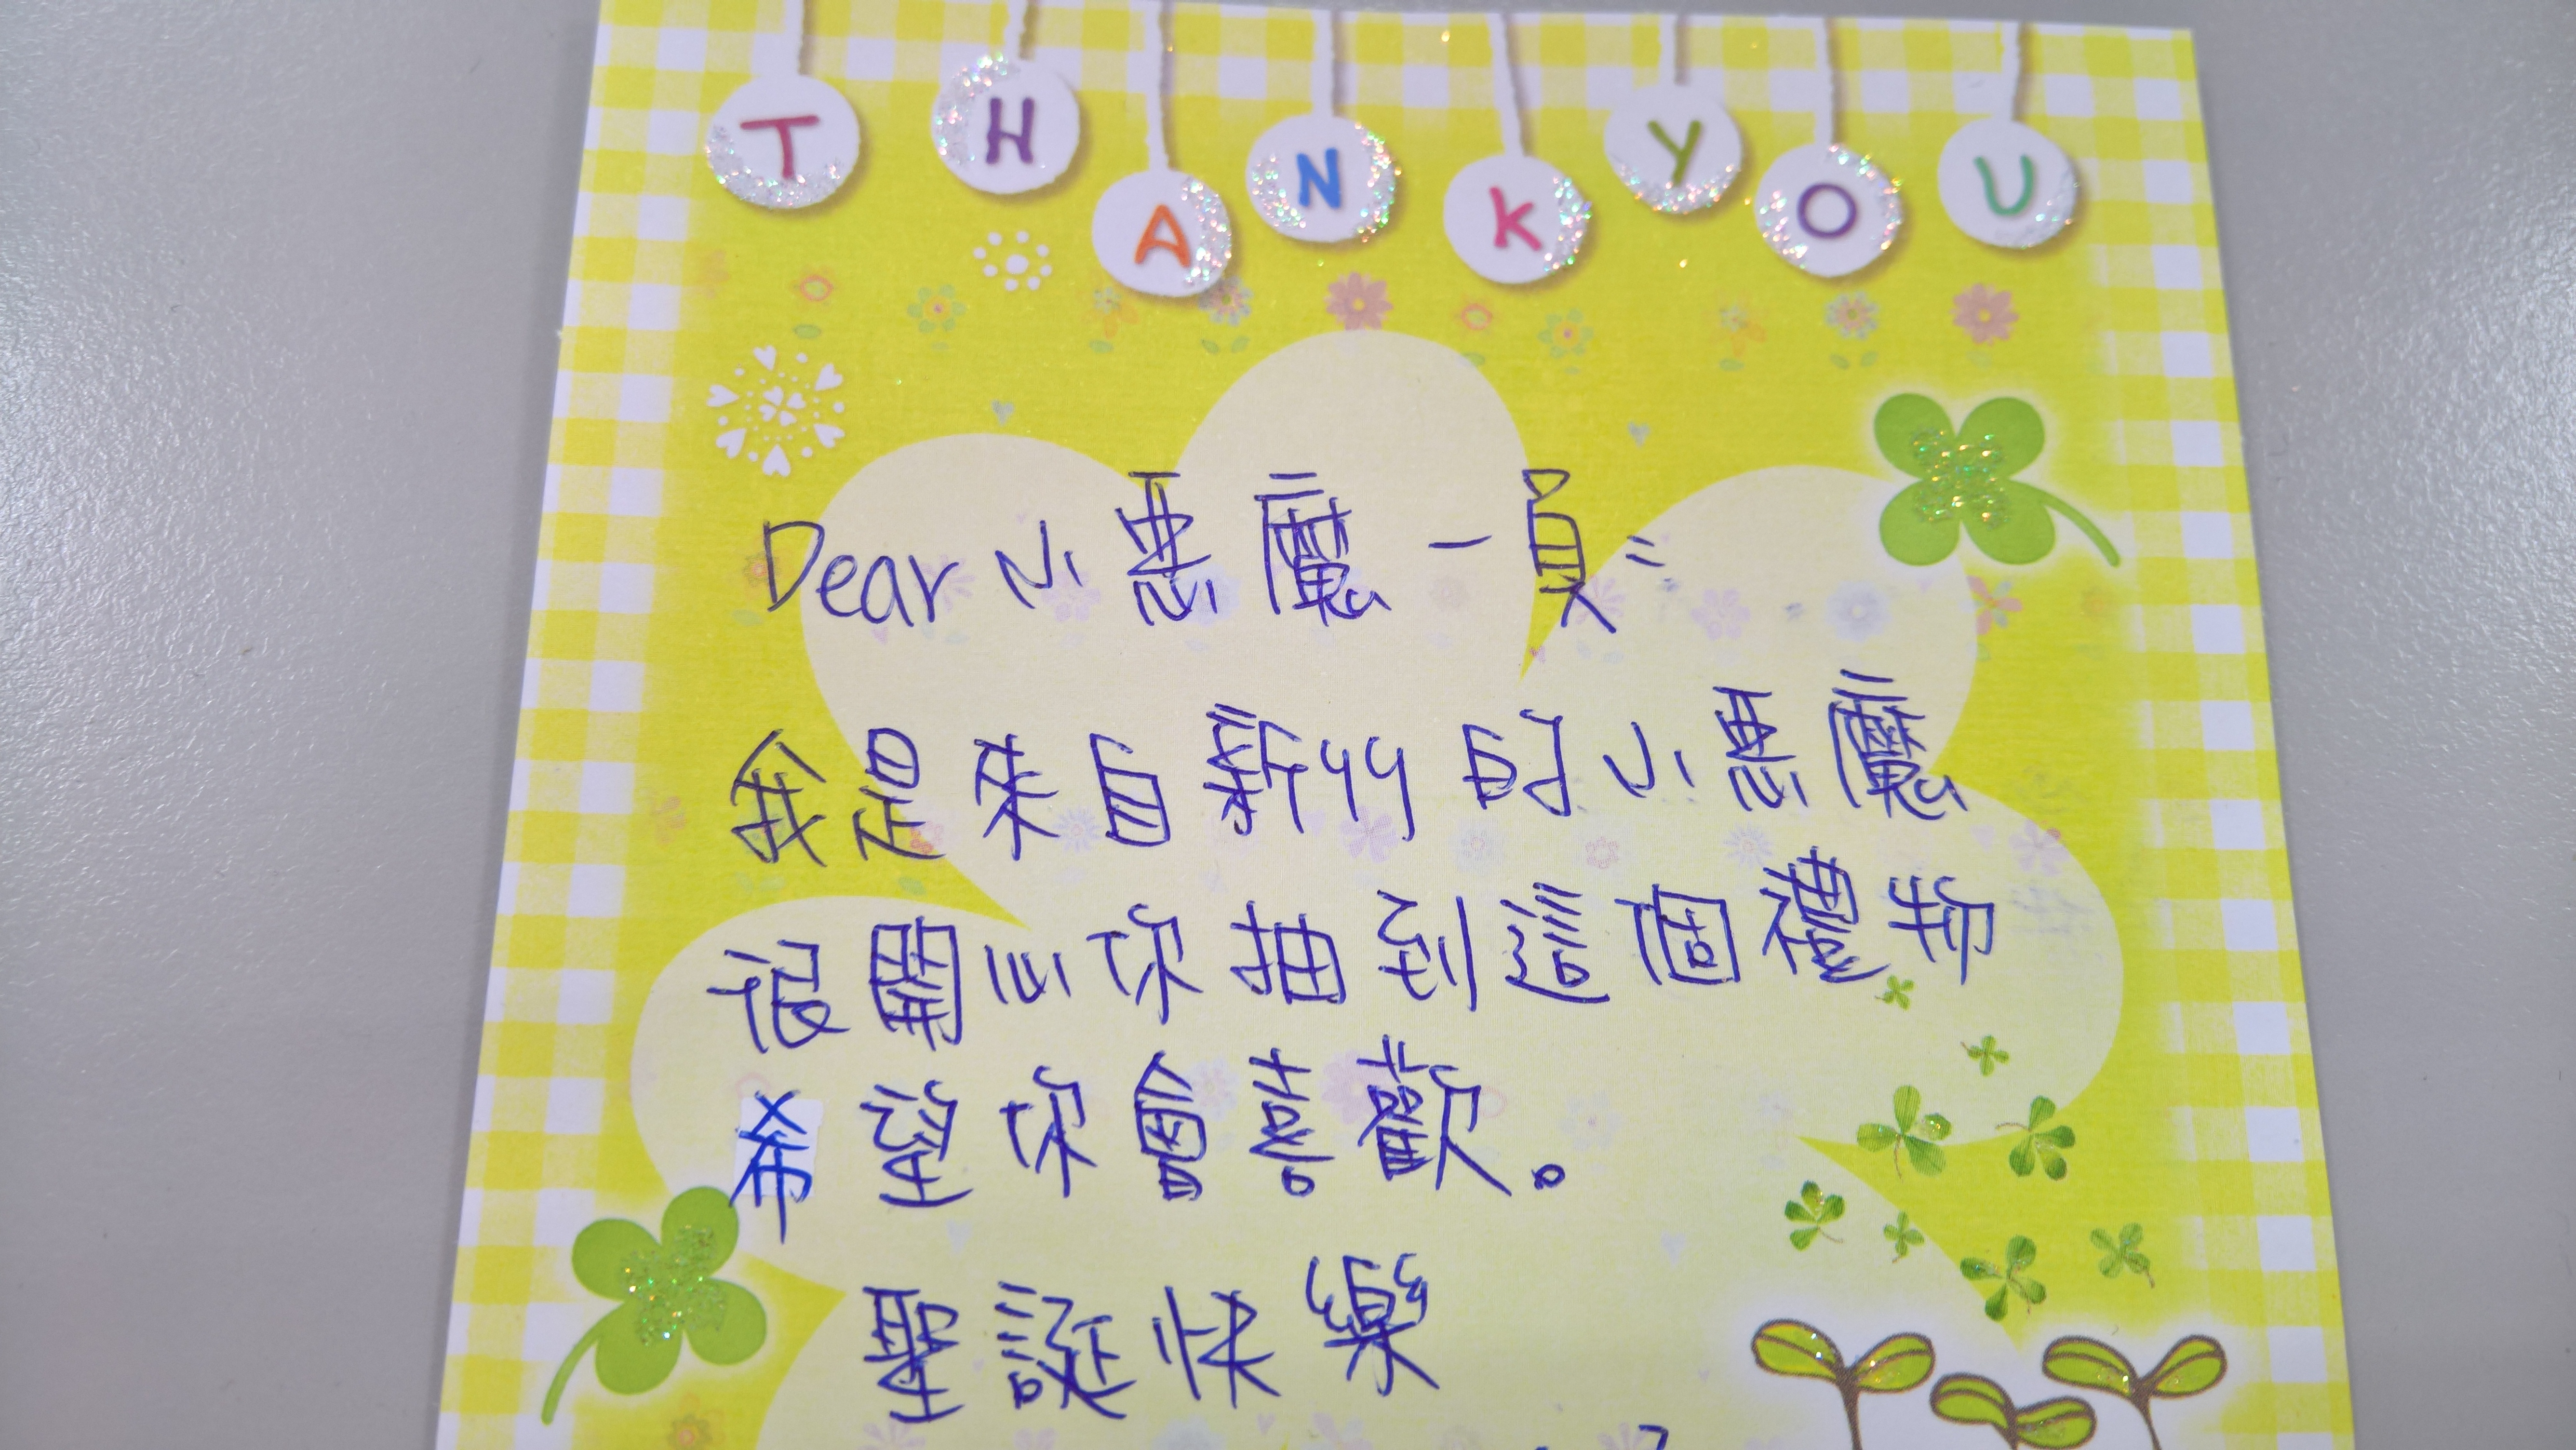 THANK YOU
Dear 小惡魔一員：
我是來自新竹的小惡魔
很開心你抽到這個禮物
希望你會喜歡。
聖誕快樂